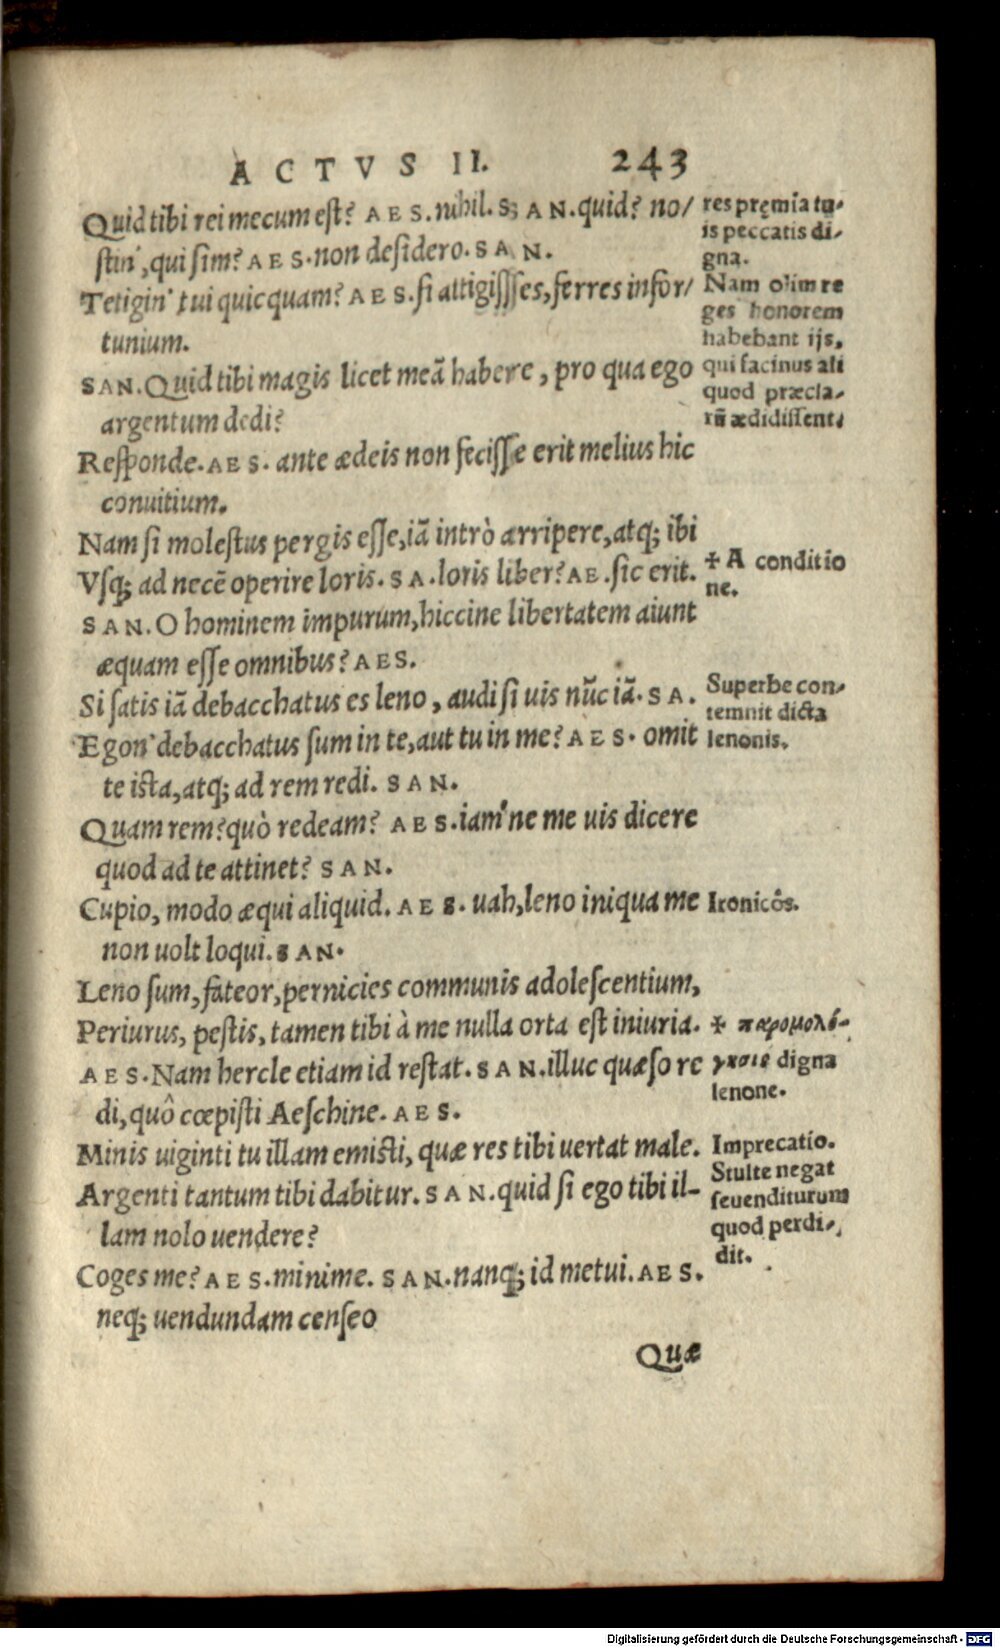 ACTVS II. 243
Quid tibi rei mecum est? AES. nihil. SAN. quid? no/
stin', qui sim? AES. non desidero. SAN.
Tetigin' tui quicquam? AES. si attigisses, ferres infor/
tunium.
SAN. Quid tibi magis licet meā habere, pro qua ego
argentum dedi?
Responde. AES. ante ædeis non fecisse erit melius hic
conuitium.
Nam si molestus pergis esse, iā intrò arripere, atq; ibi
Vsq; ad necē operire loris. SA. loris liber? AE. sic erit.
SAN. O hominem impurum, hiccine libertatem aiunt
æquam esse omnibus? AES.
Si satis iā debacchatus es leno, audi si uis nūc iā. SA.
Egon' debacchatus sum in te, aut tu in me? AES. omit
te ista, atq; ad rem redi. SAN.
Quam rem? quò redeam? AES. iam'ne me uis dicere
quod ad te attinet? SAN.
Cupio, modo æqui aliquid. AES. uah, leno iniqua me
non uolt loqui. SAN.
Leno sum, fateor, pernicies communis adolescentium,
Periurus, pestis, tamen tibi à me nulla orta est iniuria.
AES. Nam hercle etiam id restat. SAN. illuc quæso re
di, quô cœpisti Aeschine. AES.
Minis uiginti tu illam emisti, quæ res tibi uertat male.
Argenti tantum tibi dabitur. SAN. quid si ego tibi il-
lam nolo uendere?
Coges me? AES. minime. SAN. nanq; id metui. AES.
neq; uendundam censeo
Quæ
res pręmia tu-
is peccatis di-
gna.
Nam olim re
ges honorem
habebant ijs,
qui facinus ali
quod præcla-
rū ædidissent,
+ A conditio
ne.
Superbe con-
temnit dicta
lenonis.
Ironicôs.
+ παρομολό-
γησις digna
lenone.
Imprecatio.
Stulte negat
se uenditurum
quod perdi-
dit.
Digitalisierung gefördert durch die Deutsche Forschungsgemeinschaft - DFG